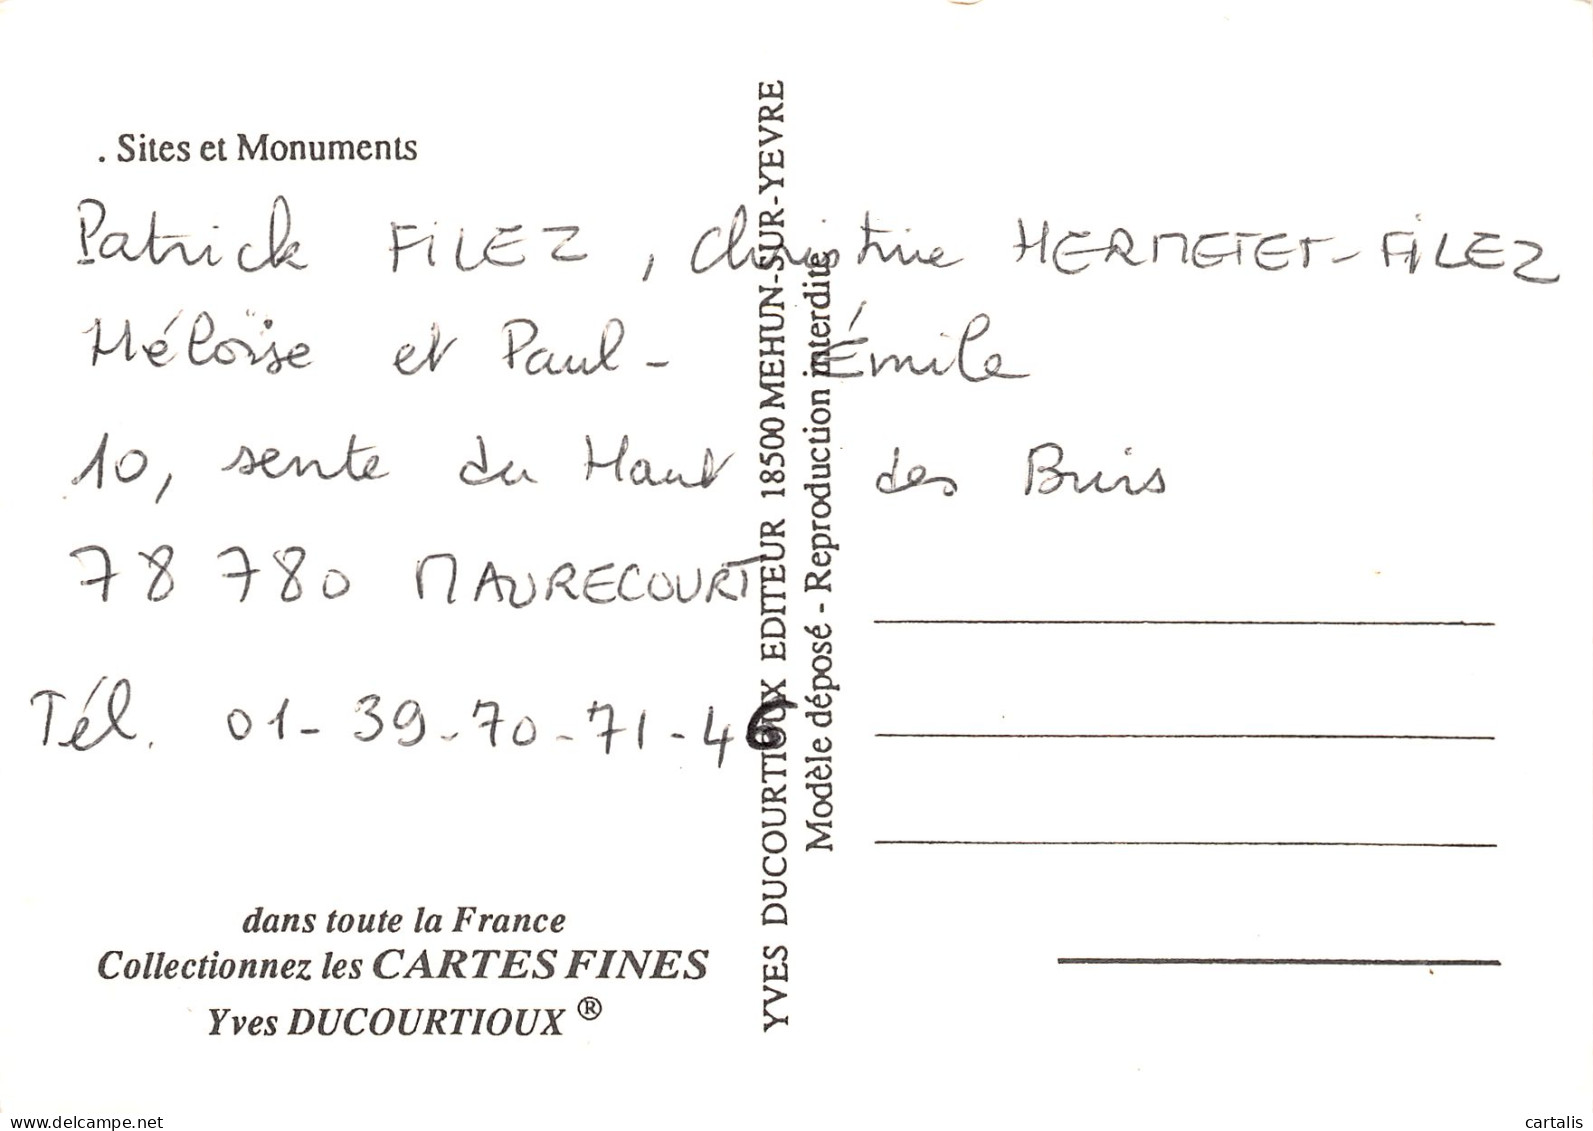 . Sites et Monuments
Patrick FILEZ, Christine HERMETET-FILEZ
Héloïse et Paul-Émile
10, sente du Haut des Buis
78 780 MAURECOURT
Tél. 01-39-70-71-46
dans toute la France
Collectionnez les CARTES FINES
Yves DUCOURTIOUX ®
YVES DUCOURTIOUX EDITEUR 18500 MEHUN-SUR-YEVRE
Modèle déposé - Reproduction interdite
delcampe.net
cartalis